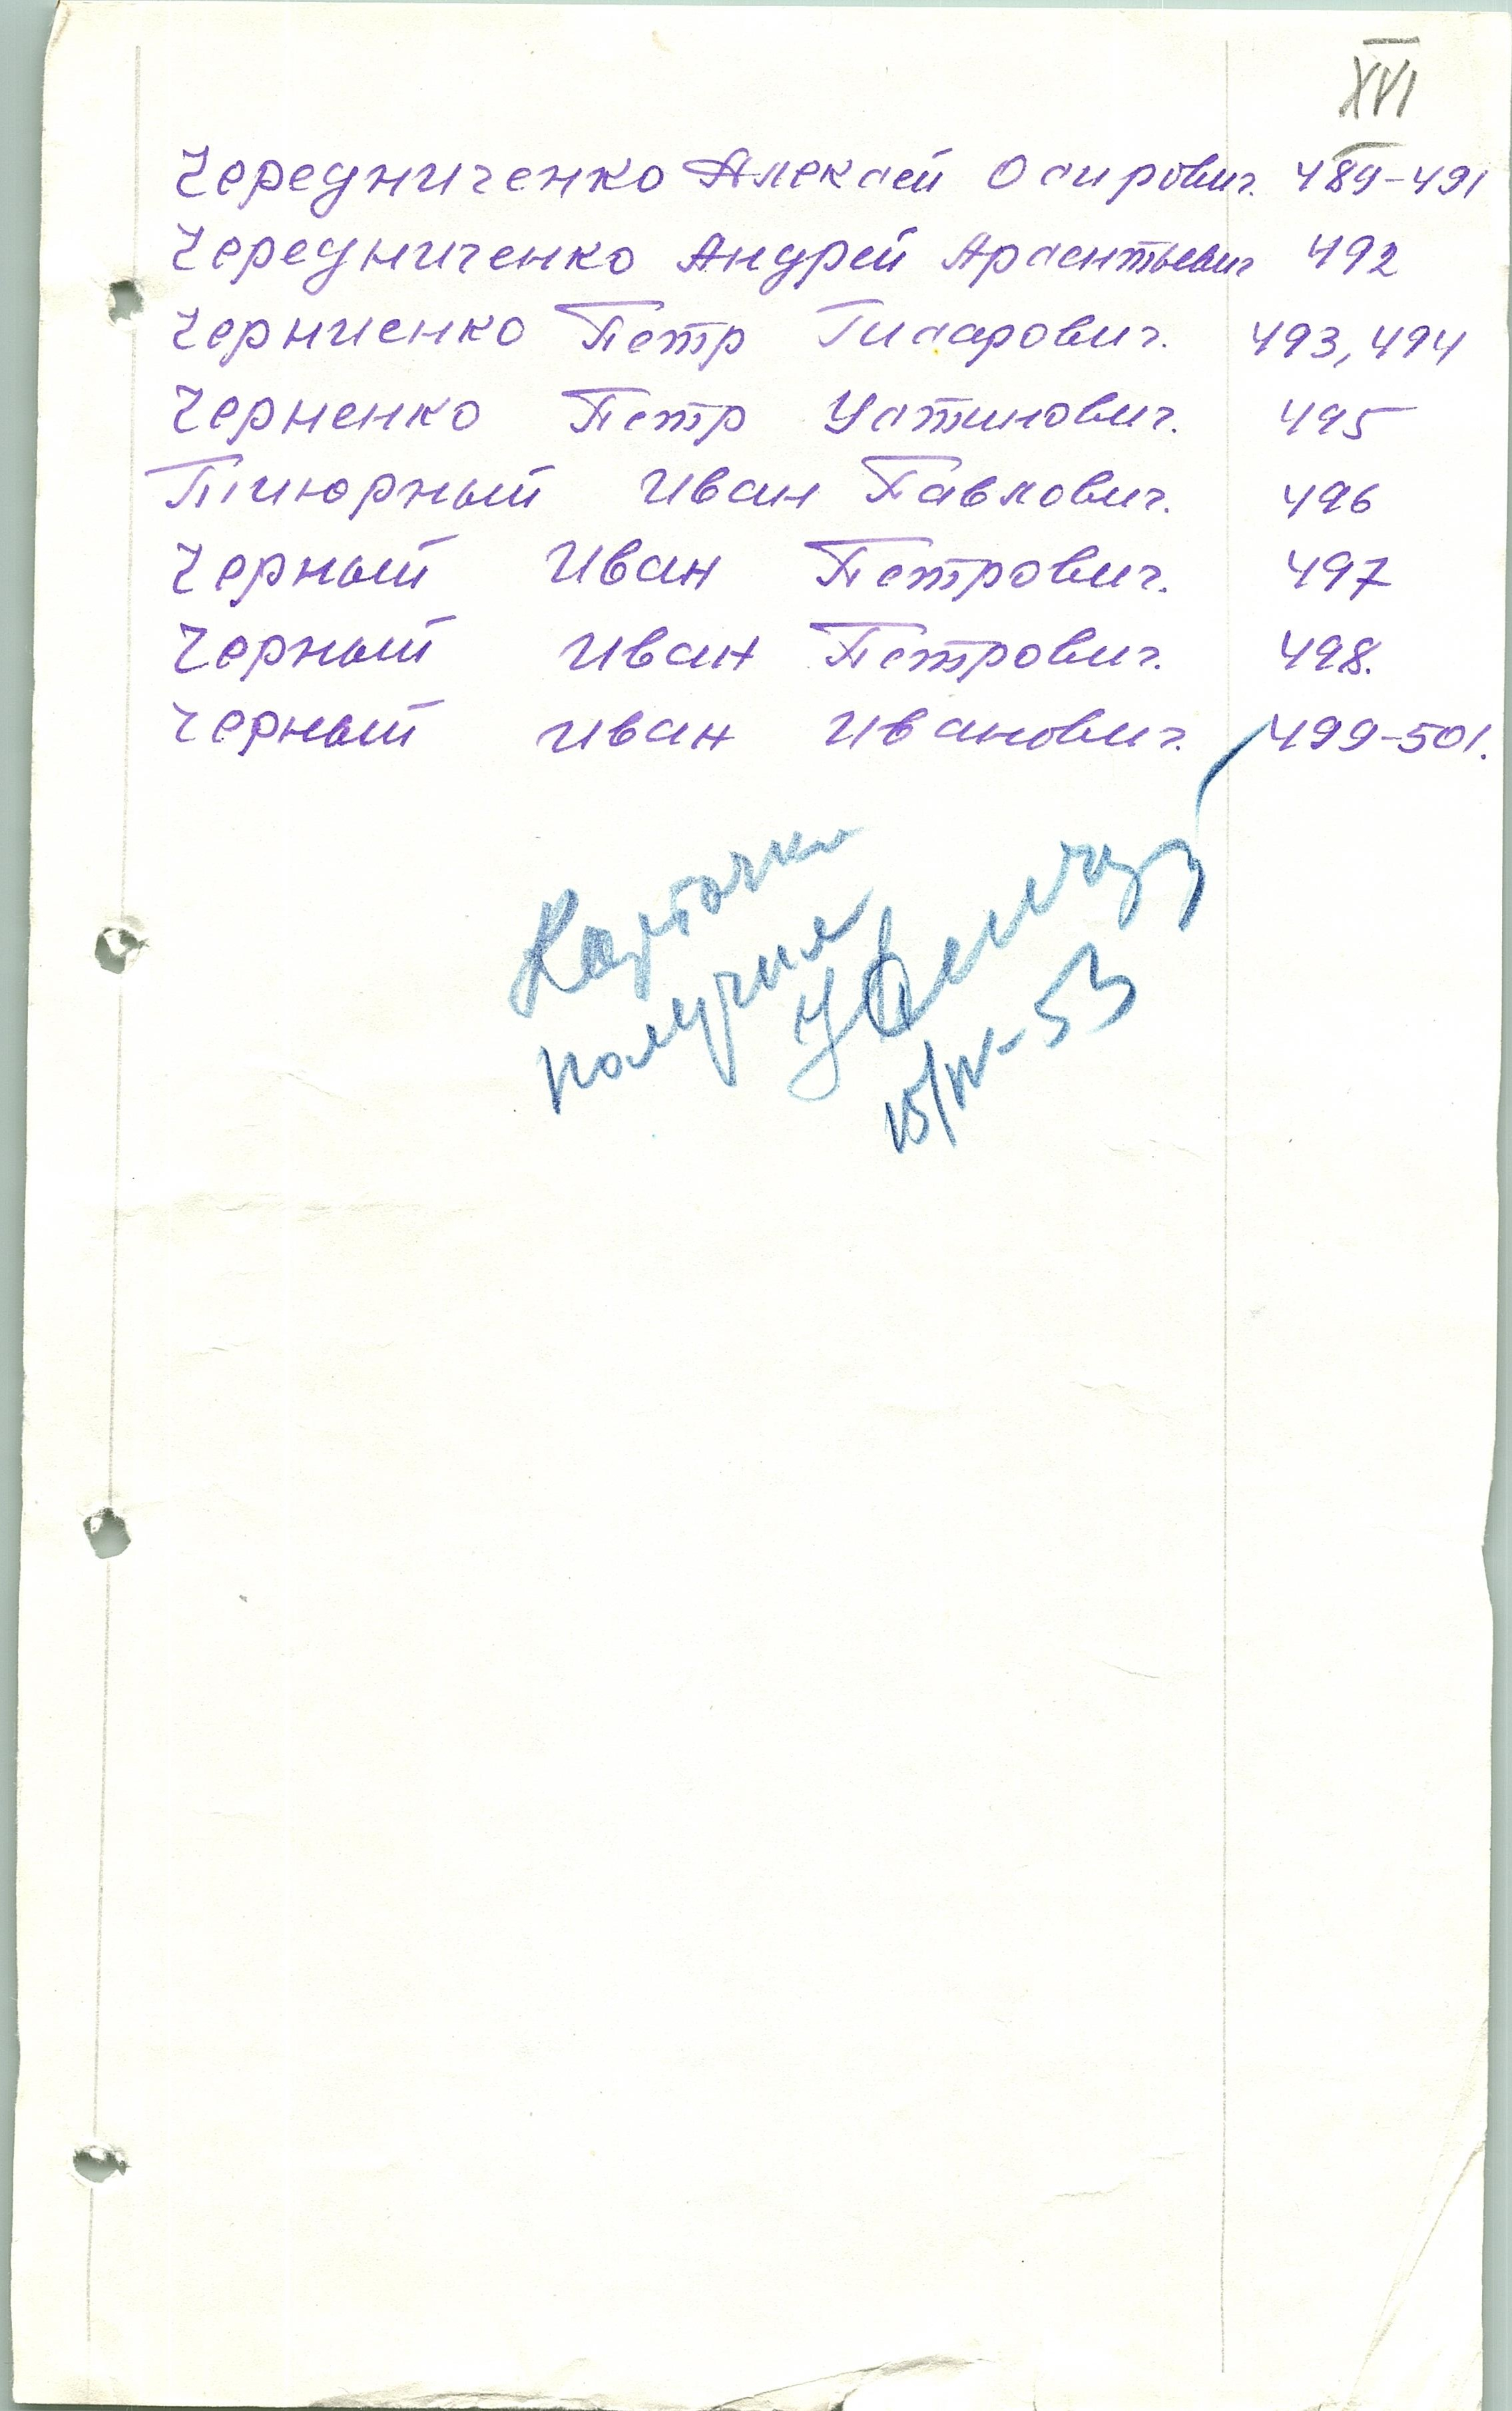 XVI
Чередниченко Алексей Осипович. 489-491
Чередниченко Андрей Арсентьевич 492
Черниенко Петр Писарович. 493, 494
Черненко Петр Устинович. 495
Иван Павлович. 496
Черный Иван Петрович. 497
Черный Иван Петрович. 498.
Черный Иван Иванович. 499-501.
Карточки
получил
15/IV-53